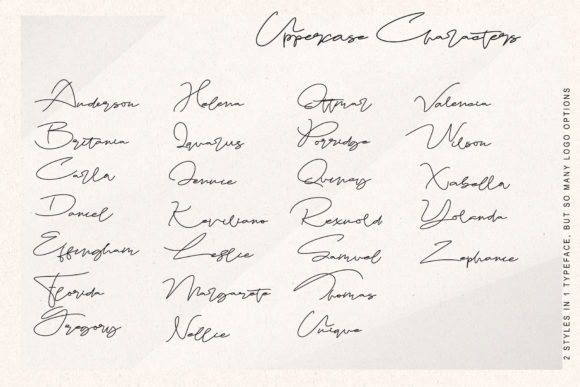 Uppercase Characters
Anderson
Britania
Carla
Daniel
Effingham
Florida
Gregory
Helena
Iquarus
Jennie
Keviliano
Leslie
Margarete
Nellie
Ottmar
Porridge
Quincy
Samuel
Thomas
Unique
Valencia
Wilson
Xabella
Yolanda
Zephanie
2 STYLES IN 1 TYPEFACE, BUT SO MANY LOGO OPTIONS